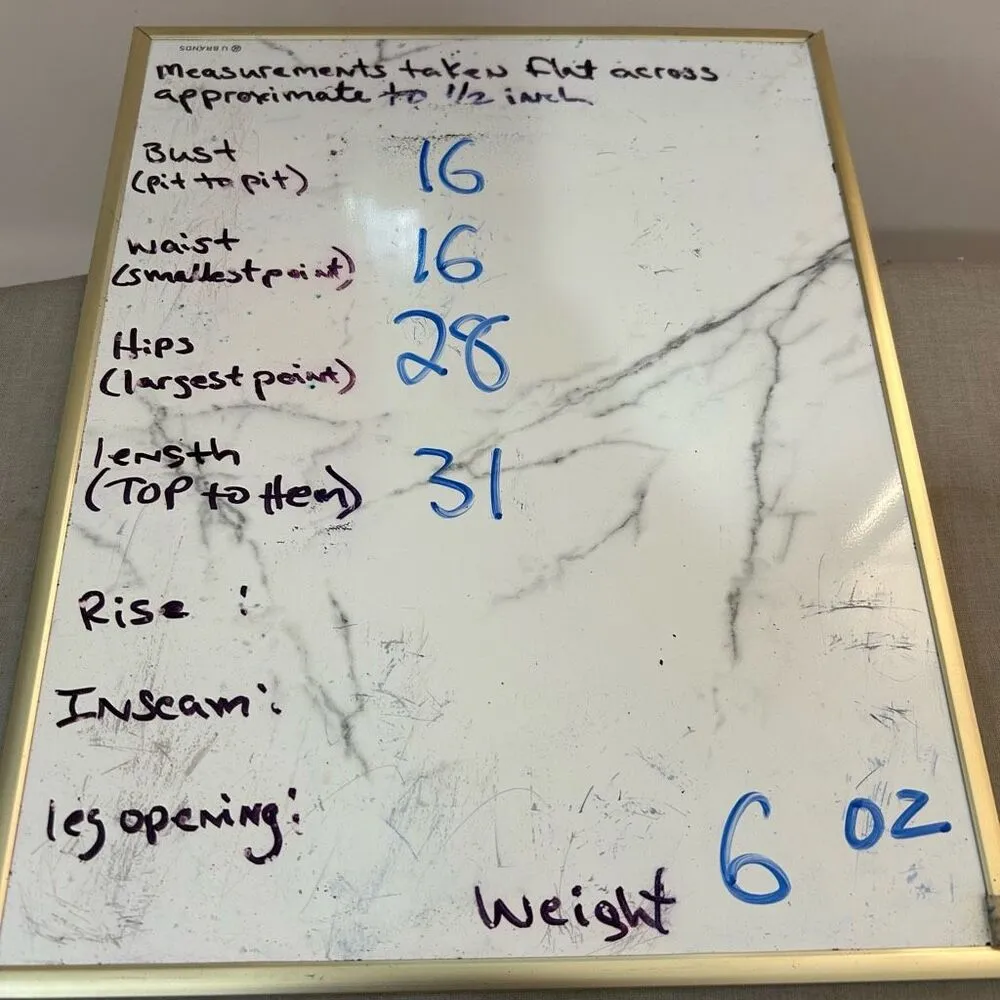 ® U BRANDS
Measurements taken flat across
approximate to 1/2 inch
Bust 16
(pit to pit)
waist 16
(smallest point)
Hips 28
(largest point)
length 31
(TOP to Hem)
Rise :
INseam:
leg opening:
Weight 6 oz